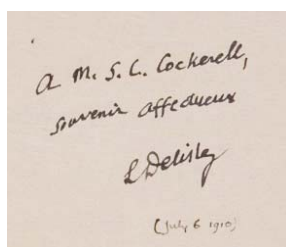 A M. S. C. Cockerell,
souvenir affectueux
L Delisle
(July 6 1910)